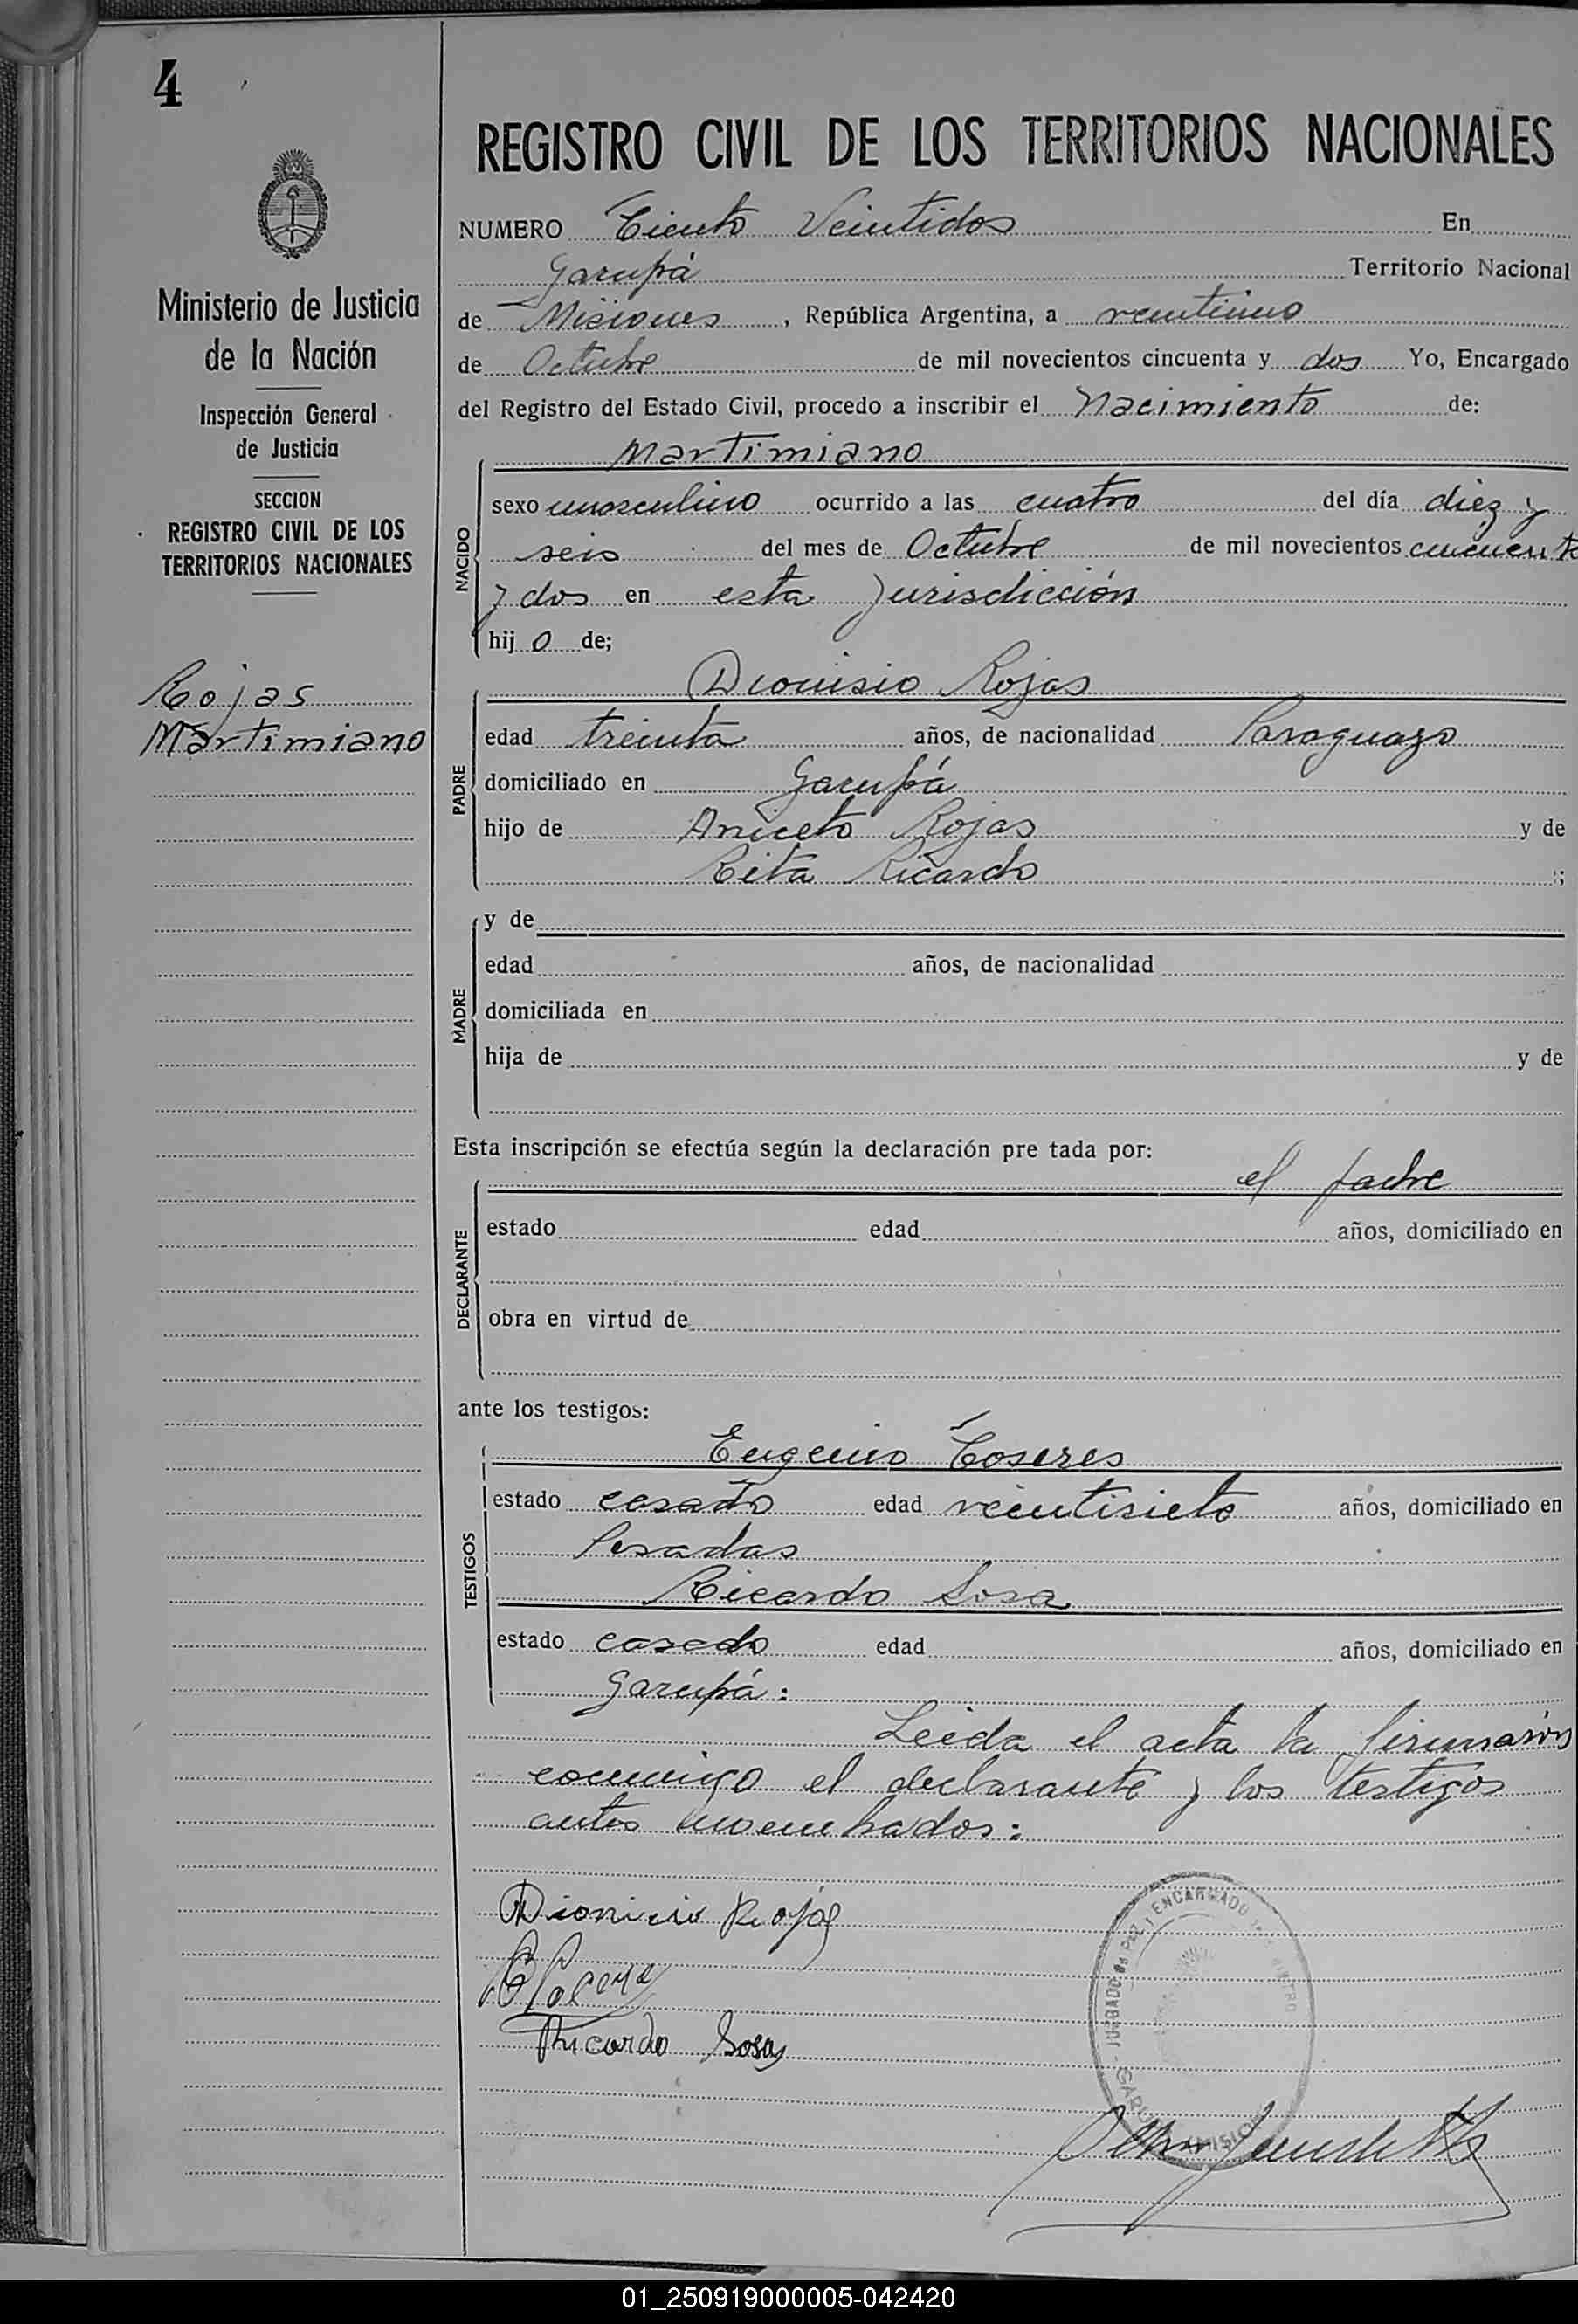 4
REGISTRO CIVIL DE LOS TERRITORIOS NACIONALES
NUMERO Ciento Veintidos En
Garupá Territorio Nacional
de Misiones, República Argentina, a veintiuno
de Octubre de mil novecientos cincuenta y dos Yo, Encargado
del Registro del Estado Civil, procedo a inscribir el Nacimiento de:
Ministerio de Justicia
de la Nación
Inspección General
de Justicia
SECCION
REGISTRO CIVIL DE LOS
TERRITORIOS NACIONALES
Rojas
Martimiano
NACIDO
Martimiano
sexo masculino ocurrido a las cuatro del día diez y
seis del mes de Octubre de mil novecientos cincuenta
y dos en esta Jurisdicción
hij o de;
PADRE
Dionisio Rojas
edad treinta años, de nacionalidad Paraguayo
domiciliado en Garupá
hijo de Aniceto Rojas y de
Rita Ricardo ;
MADRE
y de
edad años, de nacionalidad
domiciliada en
hija de y de
Esta inscripción se efectúa según la declaración pre tada por:
el padre
DECLARANTE
estado edad años, domiciliado en
obra en virtud de
ante los testigos:
TESTIGOS
Eugenio Coseres
estado casado edad veintisiete años, domiciliado en
Posadas
Ricardo Sosa
estado casado edad años, domiciliado en
Garupá:
Leida el acta la firmaron
conmigo el declarante y los testigos
antes nombrados:
Dionicio Rojas
Ricardo Sosa
JUZGADO DE PAZ Y ENCARGADO
01_250919000005-042420